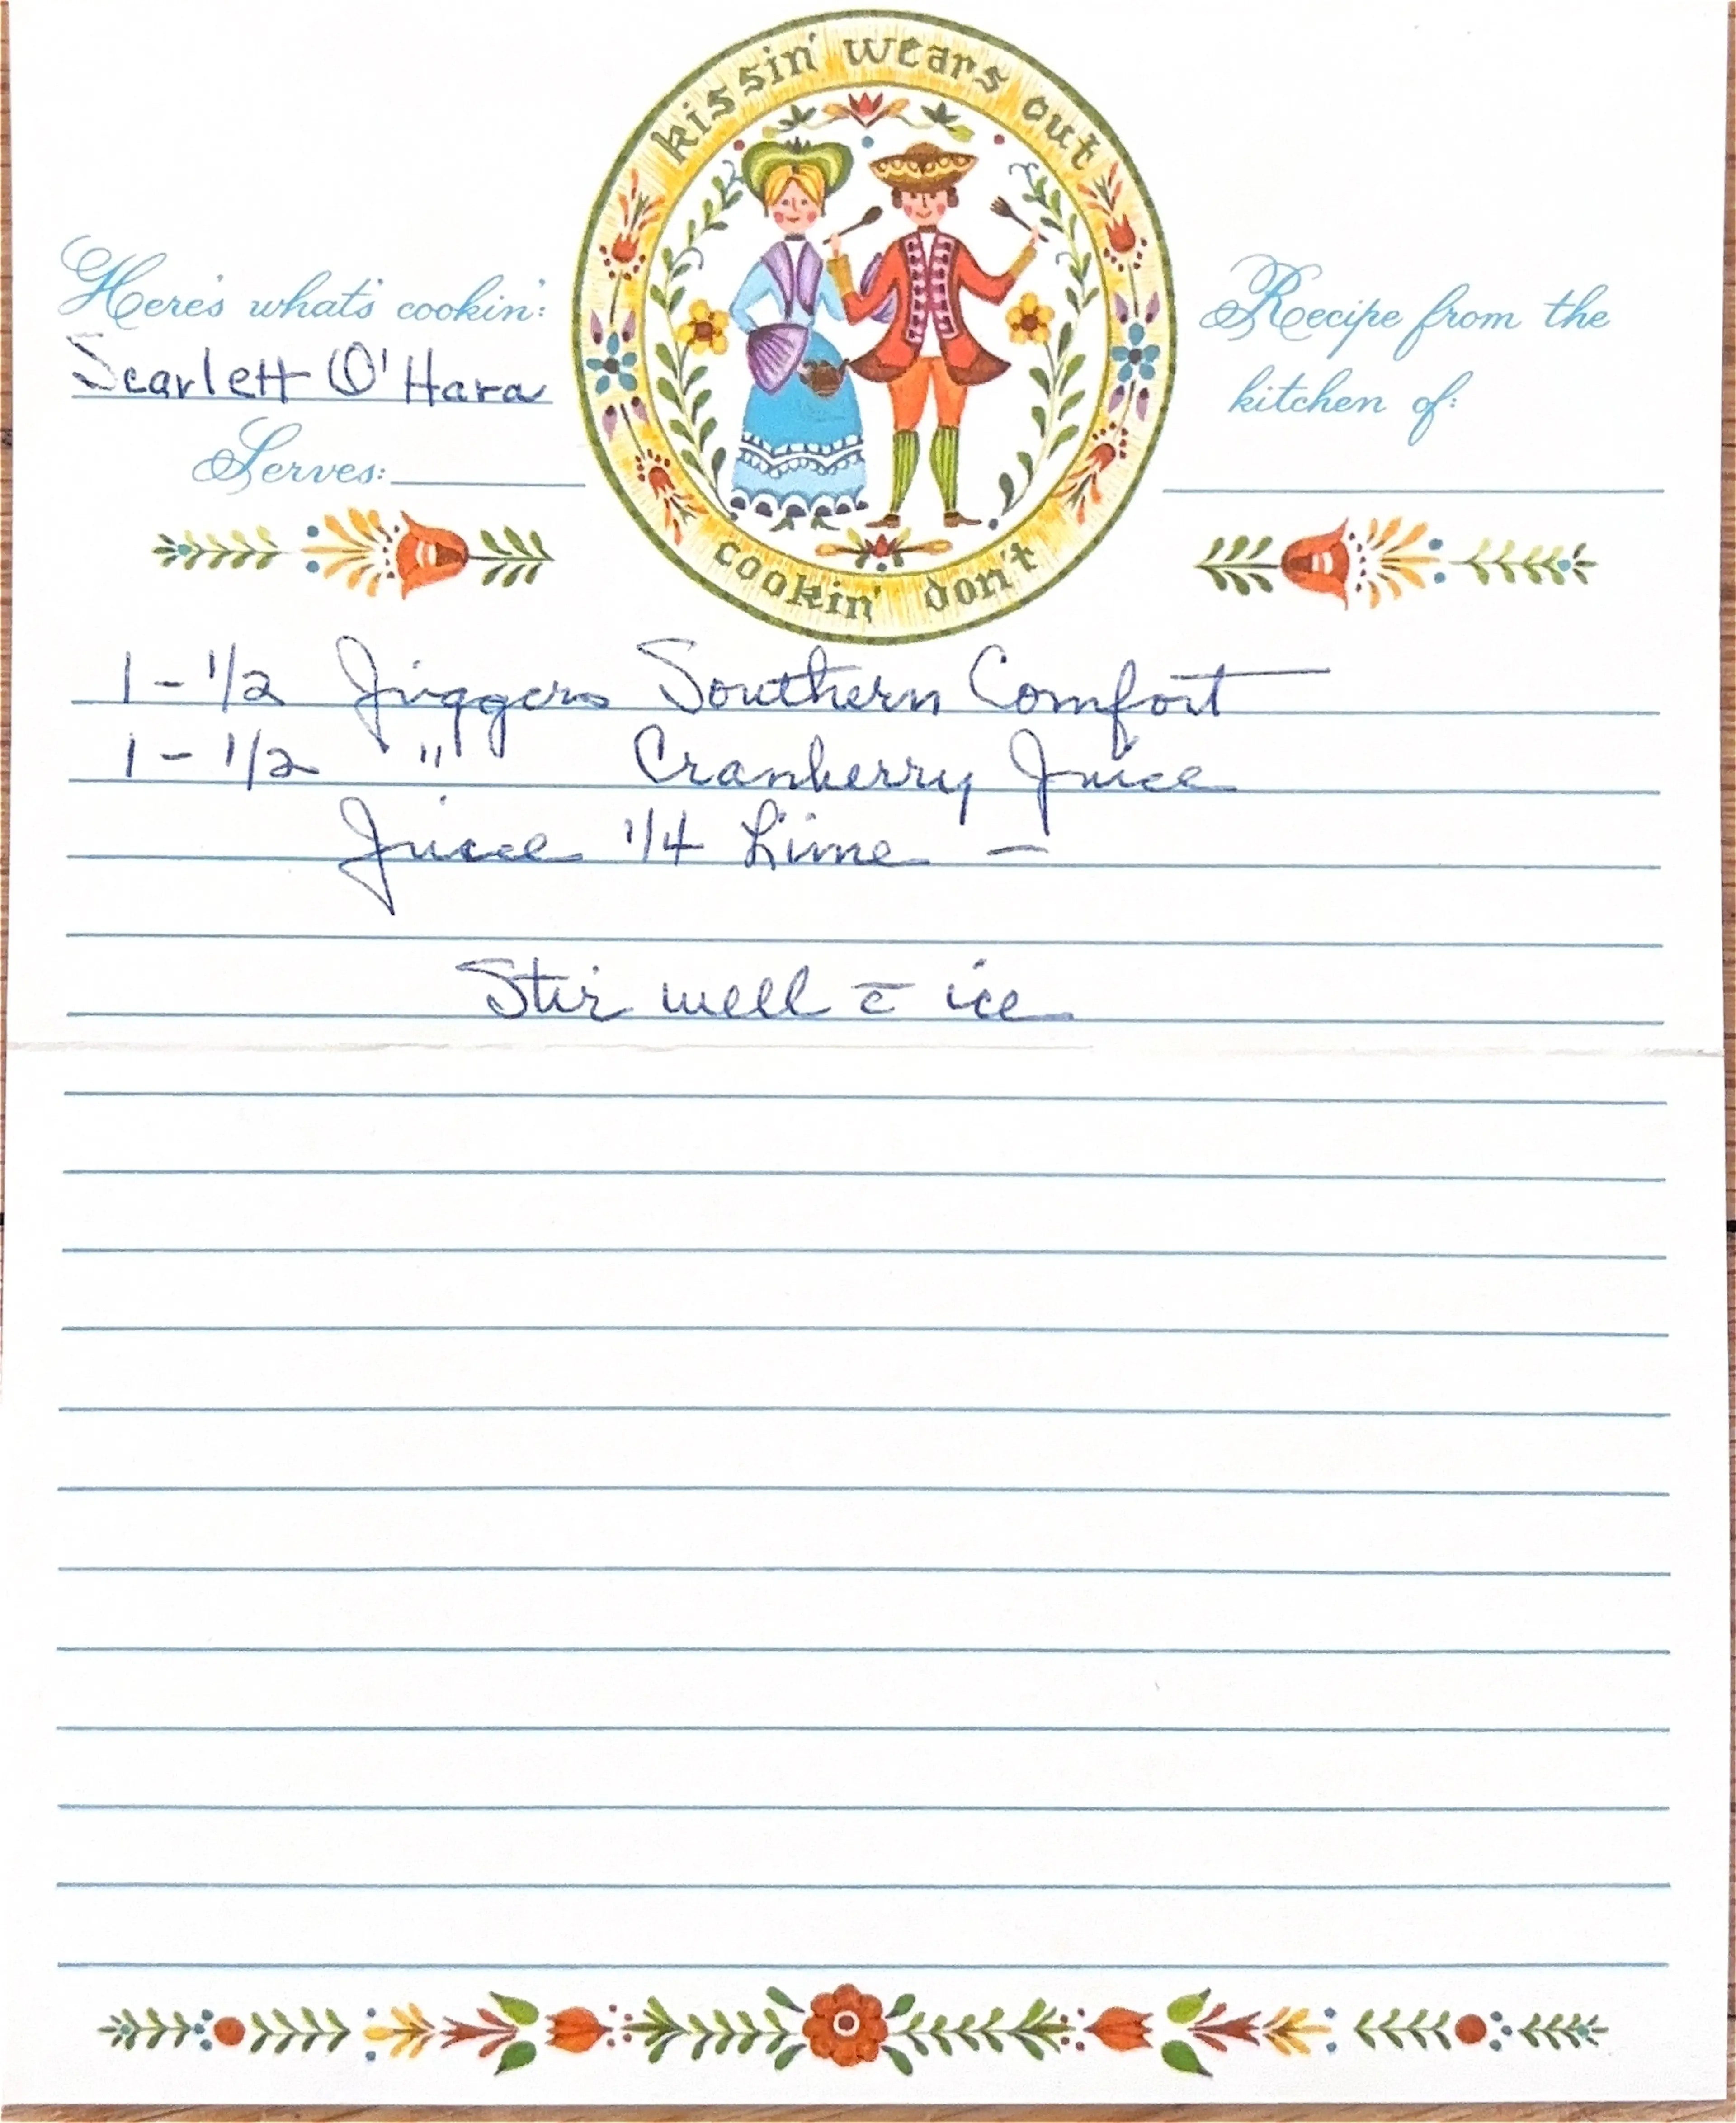 kissin' wears out
cookin' don't
Here's what's cookin':
Scarlett O'Hara
Serves:
Recipe from the
kitchen of:
1-1/2 Jiggers Southern Comfort
1-1/2 " Cranberry Juice
Juice 1/4 Lime —
Stir well c̄ ice